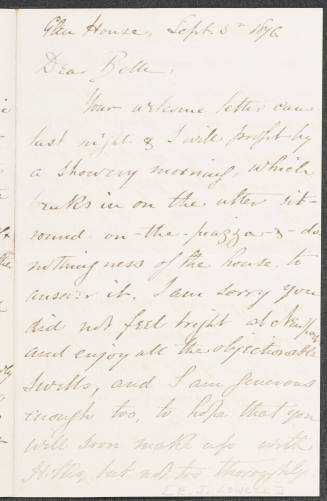 Glen House, Sept. 3rd 1876
Dear Belle,
Your welcome letter came
last night & I will profit by
a showery morning, which
breaks in on the utter sit-
round-on-the-piazza-&-do-
nothingness of the house, to
answer it. I am sorry you
did not feel bright at Newport
and enjoy all the objectionable
swells, and I am generous
enough too, to hope that you
will soon make up with
but not too thoroughly